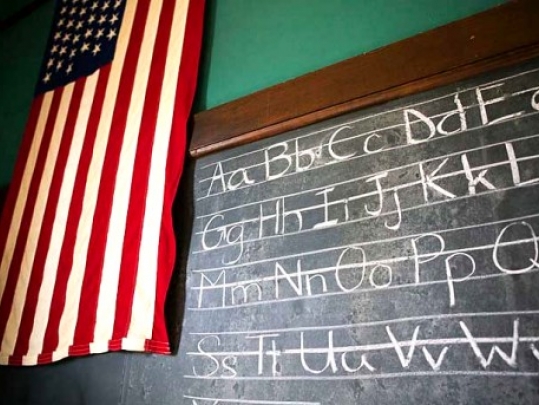 Aa Bb Cc Dd E
Gg Hh Ii Jj Kk L
Mm Nn Oo Pp Q
Ss Tt Uu Vv W